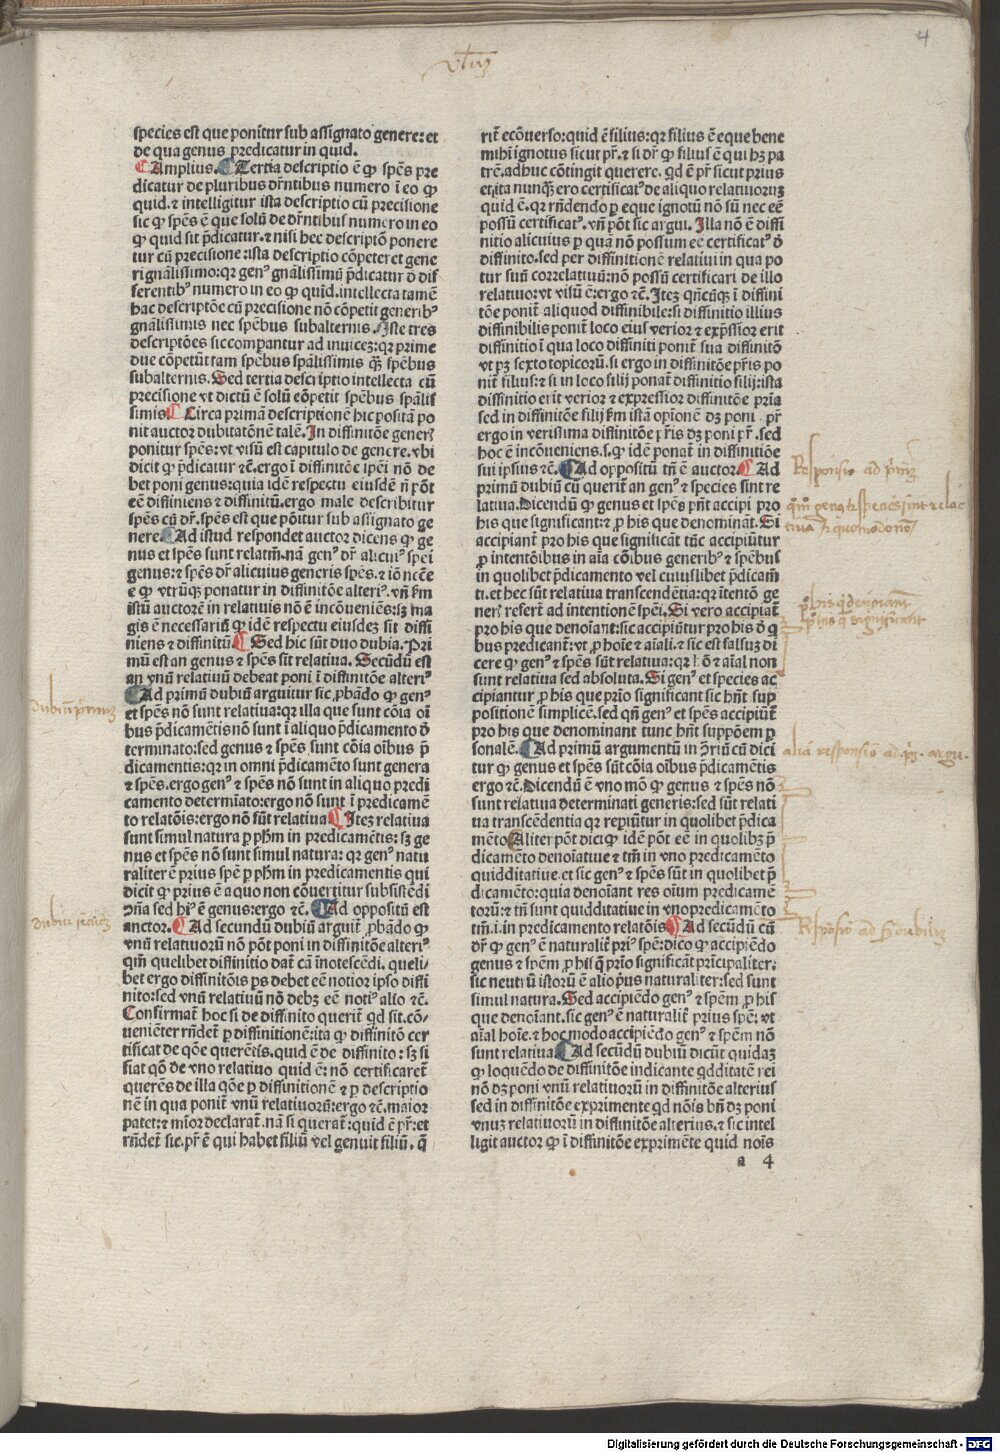 4
species est que ponitur sub assignato genere: et
de qua genus predicatur in quid.
Amplius. Tertia descriptio ē ꝙ spēs pre
dicatur de pluribus dr̄ntibus numero ī eo ꝙ
quid. ⁊ intelligitur ista descriptio cū precisione
sic ꝙ spēs ē que solū de dr̄ntibus numero in eo
ꝙ quid sit p̄dicatur. ⁊ nisi hec descriptō ponere
tur cū precisione: ista descriptio cōpeteret gene
ri gnālissimo: qꝛ genꝰ gnālissimū p̄dicatur d̄ dif
ferentibꝰ numero in eo ꝙ quid. intellecta tamē
hac descriptōe cū precisione nō cōpetit generibꝰ
gnālissimis nec spēbus subalternis. Iste tres
descriptōes sic compantur ad inuicez: qꝛ prime
due cōpetūt tam spēbus spālissimis qꝫ̄ spēbus
subalternis. Sed tertia descriptio intellecta cū
precisione vt dictū ē solū cōpetit spēbus spālis
simis. Circa primā descriptionē hic positā po
nit auctor dubitatōnē talē. In diffinitōe generꝭ
ponitur spēs: vt visū est capitulo de genere. vbi
dicit ꝙ p̄dicatur ⁊c̄. ergo ī diffinitōe ipēi nō de
bet poni genus: quia idē respectu eiusdē nō pōt
eē diffiniens ⁊ diffinitū. ergo male describitur
spēs cū dr̄. spēs est que pōitur sub assignato ge
nere. Ad istud respondet auctor dicens ꝙ ge
nus et spēs sunt relatīa. nā genꝰ dr̄ alicuiꝰ spēi
genus: ⁊ spēs dr̄ alicuius generis spēs. ⁊ iō necē
e ꝙ vtrūqꝫ ponatur in diffinitōe alteriꝰ. vñ ẜm
istū auctorē in relatiuis nō ē incōueniēs: sꝫ ma
gis ē necessariū ꝙ idē respectu eiusdez sit diffi
niens ⁊ diffinitū. Sed hic sūt duo dubia. Pri
mū est an genus ⁊ spēs sūt relatiua. Secūdū est
an vnū relatiuū debeat poni ī diffinitōe alteriꝰ
Ad primū dubiū arguitur sic, ꝓbādo ꝙ genꝰ
et spēs nō sunt relatiua: qꝛ illa que sunt cōia oī
bus p̄dicamētis nō sunt ī aliquo p̄dicamento d̄
terminato: sed genus ⁊ spēs sunt cōia oībus p̄
dicamentis: qꝛ in omni p̄dicamēto sunt genera
⁊ spēs. ergo genꝰ ⁊ spēs nō sunt in aliquo predi
camento determīato: ergo nō sunt ī predicamē
to relatōis: ergo nō sūt relatiua. Itez relatiua
sunt simul natura ꝑ phm in predicamētis: sꝫ ge
nus et spēs nō sunt simul natura: qꝛ genꝰ natu
raliter ē prius spē ꝑ phm in predicamentis qui
dicit ꝙ prius ē a quo non cōuertitur subsistēdi
ꝯña sed hiꝰ ē genus: ergo ⁊c̄. Ad oppositū est
auctor. Ad secundū dubiū arguit̄, ꝓbādo ꝙ
vnū relatiuorū nō pōt poni in diffinitōe alteriꝰ
qm̄ quelibet diffinitio dat̄ cā īnotescēdi. queli-
bet ergo diffinitōis ps debet eē notior ipso diffi
nito: sed vnū relatiuū nō debꝫ eē notiꝰ alio ⁊c̄.
Confirmat̄ hoc si de diffinito querit̄ qd sit. cō-
uenienter rñdet̄ ꝑ diffinitionē: ita ꝙ diffinitō cer
tificat de qōe querētis. quid ē de diffinito: sꝫ si
fiat qō de vno relatiuo quid ē: nō certificaret̄
querēs de illa qōe ꝑ diffinitionē ⁊ ꝑ descriptio
nē in qua ponit̄ vnū relatiuorū: ergo ⁊c̄. maior
patet: ⁊ mīor declarat̄. nā si querat̄: quid ē pr̄: et
rñdet̄ sic. pr̄ ē qui habet filiū vel genuit filiū. q̄
rit̄ ecōuerso: quid ē filius: qꝛ filius ē eque bene
mihi ignotus sicut pr̄. ⁊ si dr̄ ꝙ filius ē qui hꝫ pa
trē. adhuc cōtingit querere. qd ē pr̄ sicut prius
et ita nunqꝫ ero certificatꝰ de aliquo relatiuoruꝫ
quid ē. qꝛ rñdendo ꝑ eque ignotū nō sū nec eē
possū certificatꝰ. vñ pōt sic argui. Illa nō ē diffi
nitio alicuius ꝑ quā nō possum eē certificatꝰ d̄
diffinito. sed per diffinitionē relatiui in qua po
tur suū correlatiuū: nō possū certificari de illo
relatiuo: vt visū ē: ergo ⁊c̄. Itez qñcūqꝫ ī diffini
tōe ponit̄ aliquod diffinibile: si diffinitio illius
diffinibilis ponit̄ loco eius verior ⁊ exp̄ssior erit
diffinitio ī qua loco diffiniti ponit̄ sua diffinitō
vt pꝫ sexto topicorū. si ergo in diffinitōe pr̄is po
nit̄ filius: ⁊ si in loco filij ponat̄ diffinitio filij: ista
diffinitio erit verior ⁊ expressior diffinitōe pr̄ia
sed in diffinitōe filij ẜm istā opīonē dꝫ poni pr̄
ergo in verissima diffinitōe pr̄is dꝫ poni pr̄. sed
hoc ē incōueniens. s. ꝙ idē ponat̄ in diffinitiōe
sui ipsius ⁊c̄. Ad oppositū tñ ē auctor. Ad
primū dubiū cū querit̄ an genꝰ ⁊ species sint re
latiua. Dicendū ꝙ genus et spēs pñt accipi pro
his que significant: ⁊ ꝑ his que denomināt. Si
accipiant̄ pro his que significāt tūc accipiūtur
ꝑ intentōibus in aīa cōibus generibꝰ ⁊ spēbus
in quolibet p̄dicamento vel cuiuslibet p̄dicam̄
ti. et hec sūt relatiua transcendētia: qꝛ ītentō ge
nerꝭ refert̄ ad intentionē spēi. Si vero accipiat̄
pro his que denoīant: sic accipiūtur pro his d̄ q̄
bus predicant̄: vt ꝑ hoīe ⁊ aīali. ⁊ sic est falsuꝫ di
cere ꝙ genꝰ ⁊ spēs sūt relatiua: qꝛ hō ⁊ aīal non
sunt relatiua sed absoluta. Si genꝰ et species ac
cipiantur ꝑ his que prīo significant sic hñt sup
positionē simplicē. sed qñ genꝰ et spēs accipiūt̄
pro his que denominant tunc hñt suppōem ꝑ
sonalē. Ad primū argumentū in ꝯriū cū dici
tur ꝙ genus et spēs sūt cōia oībus p̄dicamētis
ergo ⁊c̄. Dicendū ē vno mō ꝙ genus ⁊ spēs nō
sunt relatiua determinati generis: sed sūt relati
ua transcēdentia qꝛ repiūtur in quolibet p̄dica
mēto. Aliter pōt dici ꝙ idē pōt eē in quolibꝫ p̄
dicamēto denoīatiue ⁊ tm̄ in vno predicamēto
quidditatiue. et sic genꝰ ⁊ spēs sūt in quolibet p̄
dicamēto: quia denoīant res oīum predicamē
torū: ⁊ tñ sunt quidditatiue in vno predicamēto
tm̄. i. in predicamento relatōis. Ad secūdū cū
dr̄ ꝙ genꝰ ē naturalit̄ priꝰ spē: dico ꝙ accipiēdo
genus ⁊ spēm ꝑ his q̄ prīo significāt prīcipaliter:
sic neutrū istorū ē alio p̄us naturaliter: sed sunt
simul natura. Sed accipiēdo genꝰ ⁊ spēm ꝑ his
que denoīant. sic genꝰ ē naturalit̄ prius spē: vt
aīal hoīe. ⁊ hoc modo accipiēdo genꝰ ⁊ spēm nō
sunt relatiua. Ad secūdū dubiū dicūt quidaꝫ
ꝙ loquēdo de diffinitōe indicante qdditatē rei
nō dꝫ poni vnū relatiuorū in diffinitōe alterius
sed in diffinitōe exprimente qd nōis bñ dꝫ poni
vnuꝫ relatiuorū in diffinitōe alterius. ⁊ sic intel
ligit auctor ꝙ ī diffinitōe exprimēte quid nōis
a 4
dubiū primū
dubiū secūdū
Responsio ad primū
quō genꝰ ⁊ species sint rela
tiua ⁊ quomodo nō
pro his q̄ denoīant
pro his q̄ significant
alia responsio ad pm̄. argu.
Rn̄sio ad 2m dubiū
Digitalisierung gefördert durch die Deutsche Forschungsgemeinschaft - DFG